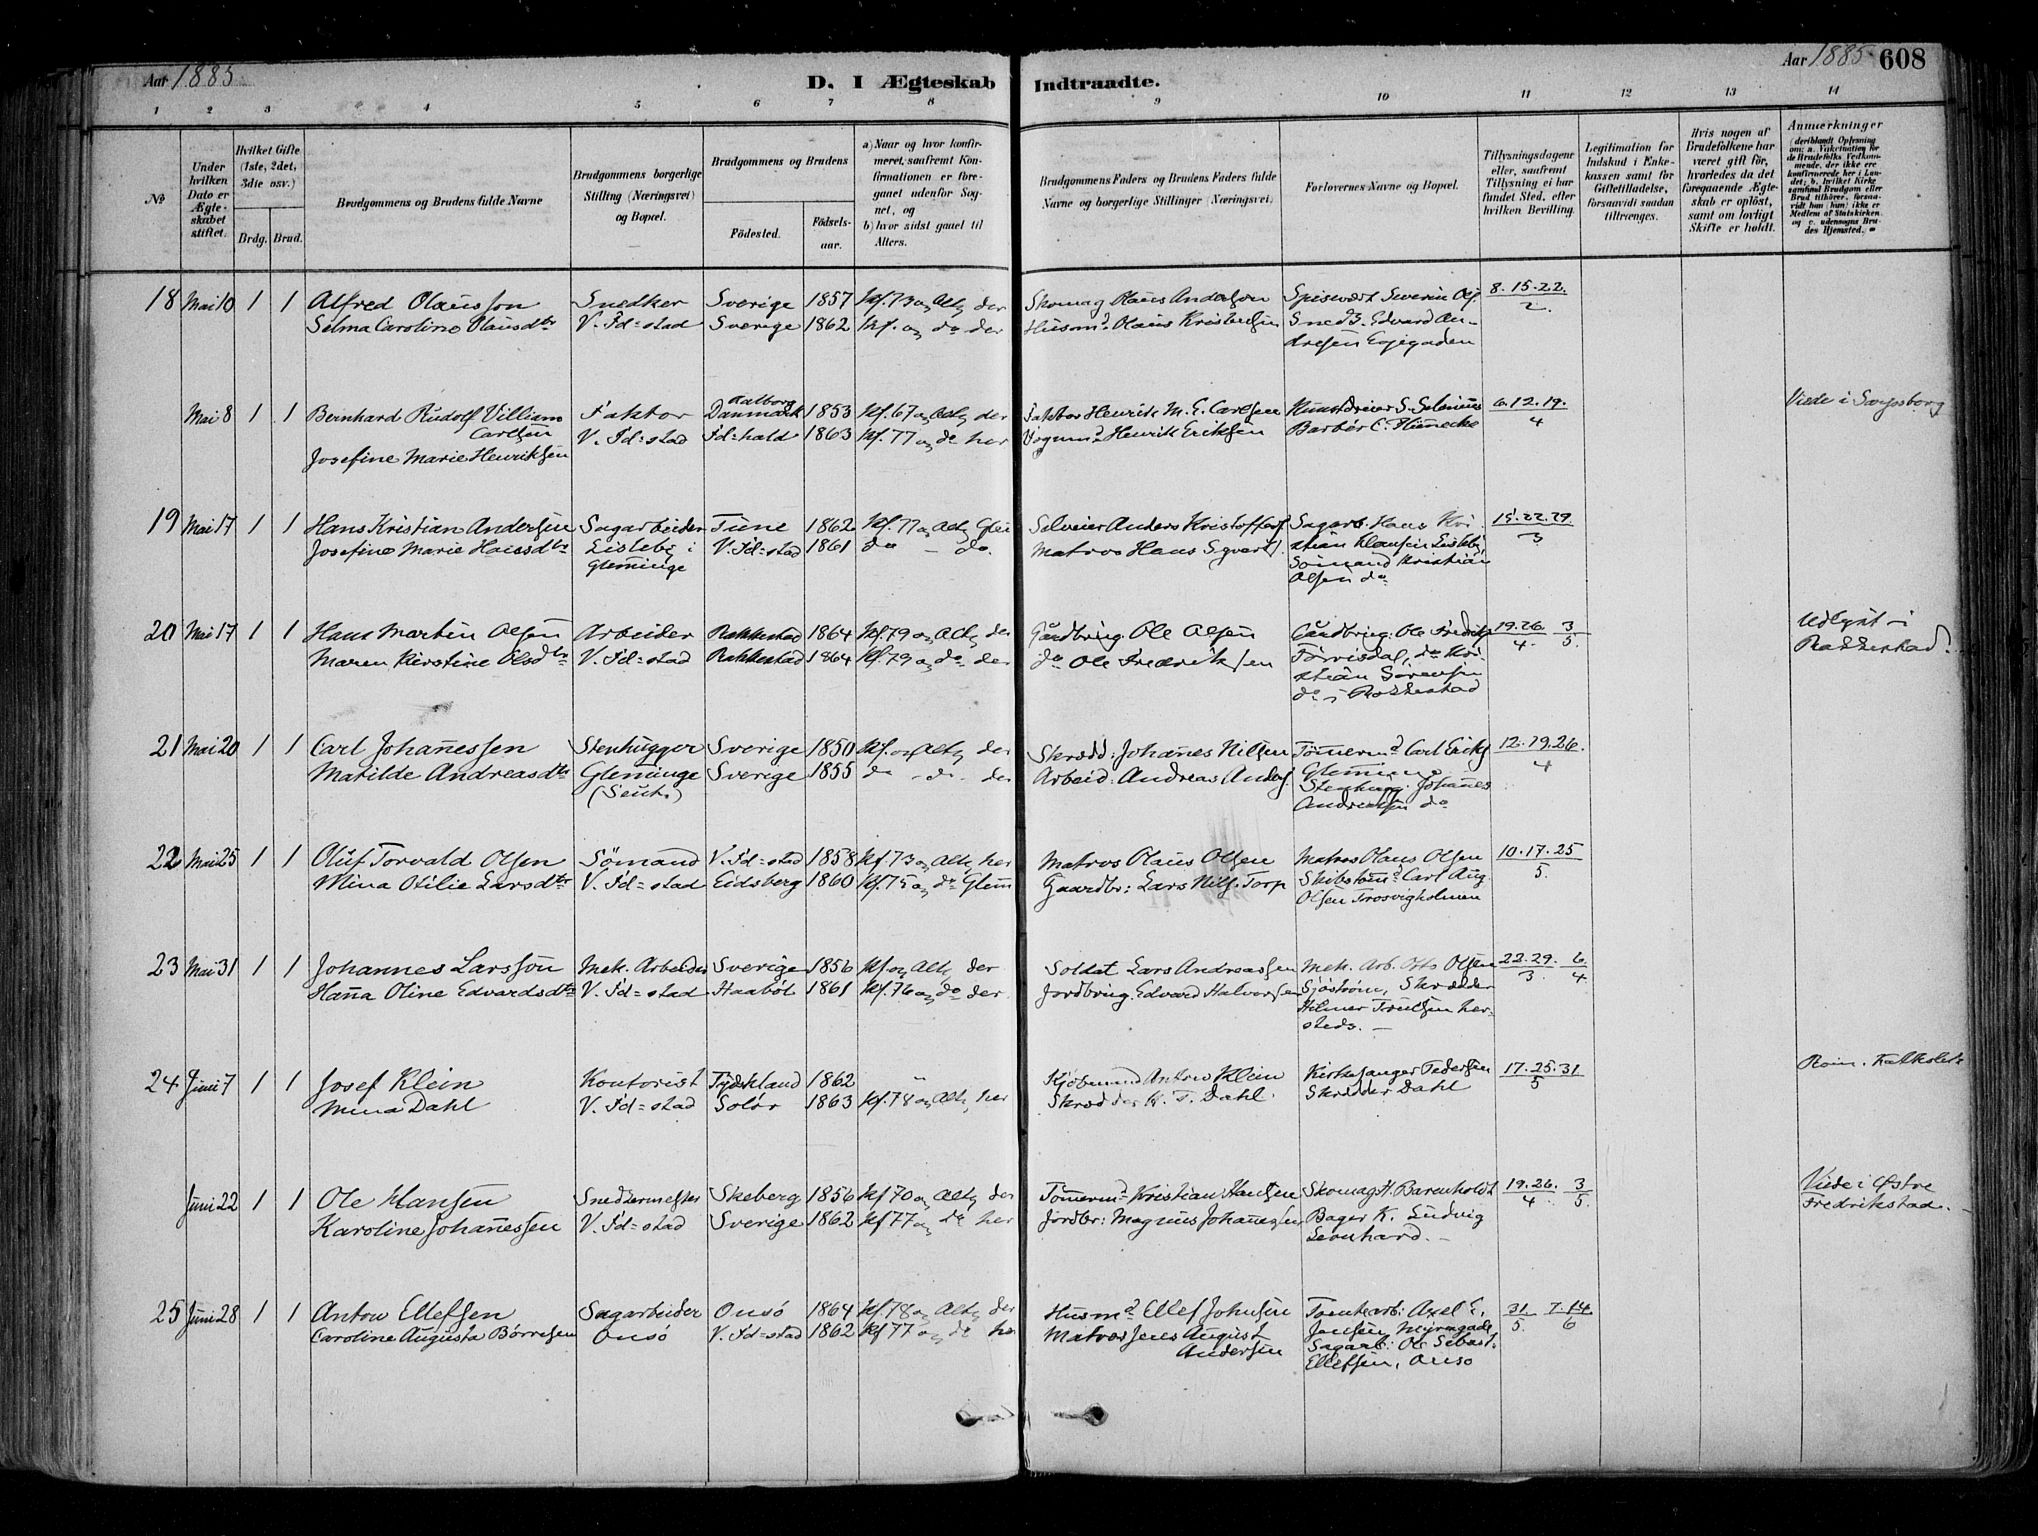 Aar 1885
D. I Ægteskab Indtraadte.
Aar 1885 608
1 2 3 4 5 6 7 8 9 10 11 12 13 14
No
Under hvilken Dato er Ægteskabet stiftet.
Hvilket Gifte (1ste, 2det, 3die osv.)
Brdg. Brud.
Brudgommens og Brudens fulde Navne
Brudgommens borgerlige Stilling (Næringsvei) og Bopæl.
Brudgommens og Brudens
Fødested. Fødselsaar.
a) Naar og hvor konfirmeret, saafremt Konfirmationen er foregaaet udenfor Sognet, og
b) hvor sidst gaaet til Alters.
Brudgommens Faders og Brudens Faders fulde Navne og borgerlige Stillinger (Næringsvei)
Forlovernes Navne og Bopæl.
Tillysningsdagene eller, saafremt Tillysning ei har fundet Sted, efter hvilken Bevilling.
Legitimation for Indskud i Enkekassen samt for Giftetilladelse, forsaavidt saadan tiltrænges.
Hvis nogen af Brudefolkene har været gift før, hvorledes da det foregaaende Ægteskab er opløst, samt om lovligt Skifte er holdt.
Anmærkninger
18 Mai 10 1 1 Alfred Olausson Snedker Sverige 1857 Kf. 73 og Altg der Skomag Olaus Anderson 8. 15. 22.
Selma Caroline Olausdtr V. Fd=stad Sverige 1862 Kf. og do der Husmd Olaus Kristensen Snedk. Edvard An- 2.
dresen Egegaden
Mai 8 1 1 Bernhard Rudolf Villiam Faktor Aalborg Danmark 1853 Kf. 67 og Altg der Faktor Henrik M. E. Carlsen S. Selenius 6. 12. 19.
Carlsen V. Fd=stad Fd=hald 1863 Kf. 77 og do her Henrik Eriksen Barbér C. 4
Josefine Marie Henriksen
Viede i Sarpsborg
19 Mai 17 1 1 Hans Kristian Andersen Sagarbeider Tune 1862 Kf. 77 og Altg Glem Selveier Anders Kristoffers. Sagarb. Hans Kri- 15. 22. 29
Josefine Marie Hansdtr Lisleby i V. Fd=stad 1861 do - do. Matros Hans Syverts. stian Klausen Lisleby 3
Glemminge Sømand Kristian
Olsen do
20 Mai 17 1 1 Hans Martin Olsen Arbeider Rakkestad 1864 Kf. 79 og Altg der Gårdbrug. Ole Olsen Gårdbrug. Ole Fredriks 19. 26. 3
Maren Kirstine Olsdtr V. Fd=stad Rakkestad 1864 Kf. 79 og do der do Ole Fredriksen do Kri- 4. 5.
stian Sørensen
do i Rakkestad
Udlyst i
Rakkestad.
21 Mai 20 1 1 Carl Johannessen Stenhugger Sverige 1850 Kf. og Altg der Skrædd. Johanes Nilsen Tømermd Carl Eriks 12. 19. 26.
Matilde Andreasdtr Glemminge Sverige 1855 do - do. der Arbeid: Andreas Anders. 4
Stenhug. Johannes
Andreasen do
22 Mai 25 1 1 Oluf Torvald Olsen Sømand V. Fd=stad 1858 Kf. 73 og Altg her Matros Olaus Olsen Matros Olaus Olsen 10. 17. 25
Mina Otilie Larsdtr V. Fd=stad Eidsberg 1860 Kf. 75 og do Glem Gaardbr: Lars Nils. Torp Skibstømd Carl Aug. 5.
Olsen Trosvigholmen
23 Mai 31 1 1 Johannes Larsson Mek. Arbeider Sverige 1856 Kf. og Altg der Soldat Lars Andreassen Mek. Arb. Otto Olsen 22. 29. 6
Hanna Oline Edvardsdtr V. Fd=stad Haabøl 1861 Kf. 76 og do der Jordbrug. Edvard Halvorsen Sjøstrøm, Skrædder 3 4
Hilmer Truelsen her-
steds. -
24 Juni 7 1 1 Josef Klein Kontorist Tydskland 1862 Kjøbmand Anton Klein Kirkesanger Pedersen 17. 25. 31
Mina Dahl V. Fd=stad Solør 1863 Kf. 78 og Altg her Skrædder K. T. Dahl. Skrædder Dahl 5
Rom. Katholik
Juni 22 1 1 Ole Hansen Snedkermester Skeberg 1856 Kf 70 og Altg der Tømermd Kristian Hansen Skomag H. Barenholdt 19. 26. 3
Karoline Johanessen V. Fd=stad Sverige 1862 Kf 77 og do her Jordbr: Magnus Johannessen Bager K. Ludvig 4 5.
Leonhard. -
Viede i Østre
Fredrikstad. -
25 Juni 28 1 1 Anton Ellefsen Sagarbeider Onsö 1864 Kf 78 og Altg der Husmd Ellef Johnsen Tomtearb: Axel E. 31. 7. 14
Caroline Augusta Børresen Onsö V. Fd=stad 1862 Kf 77 og do her Matros Jens August Jensen Myrengade 5. 6
Andersen Sagarb: Ole Sebast.
Ellefsen, Onsö